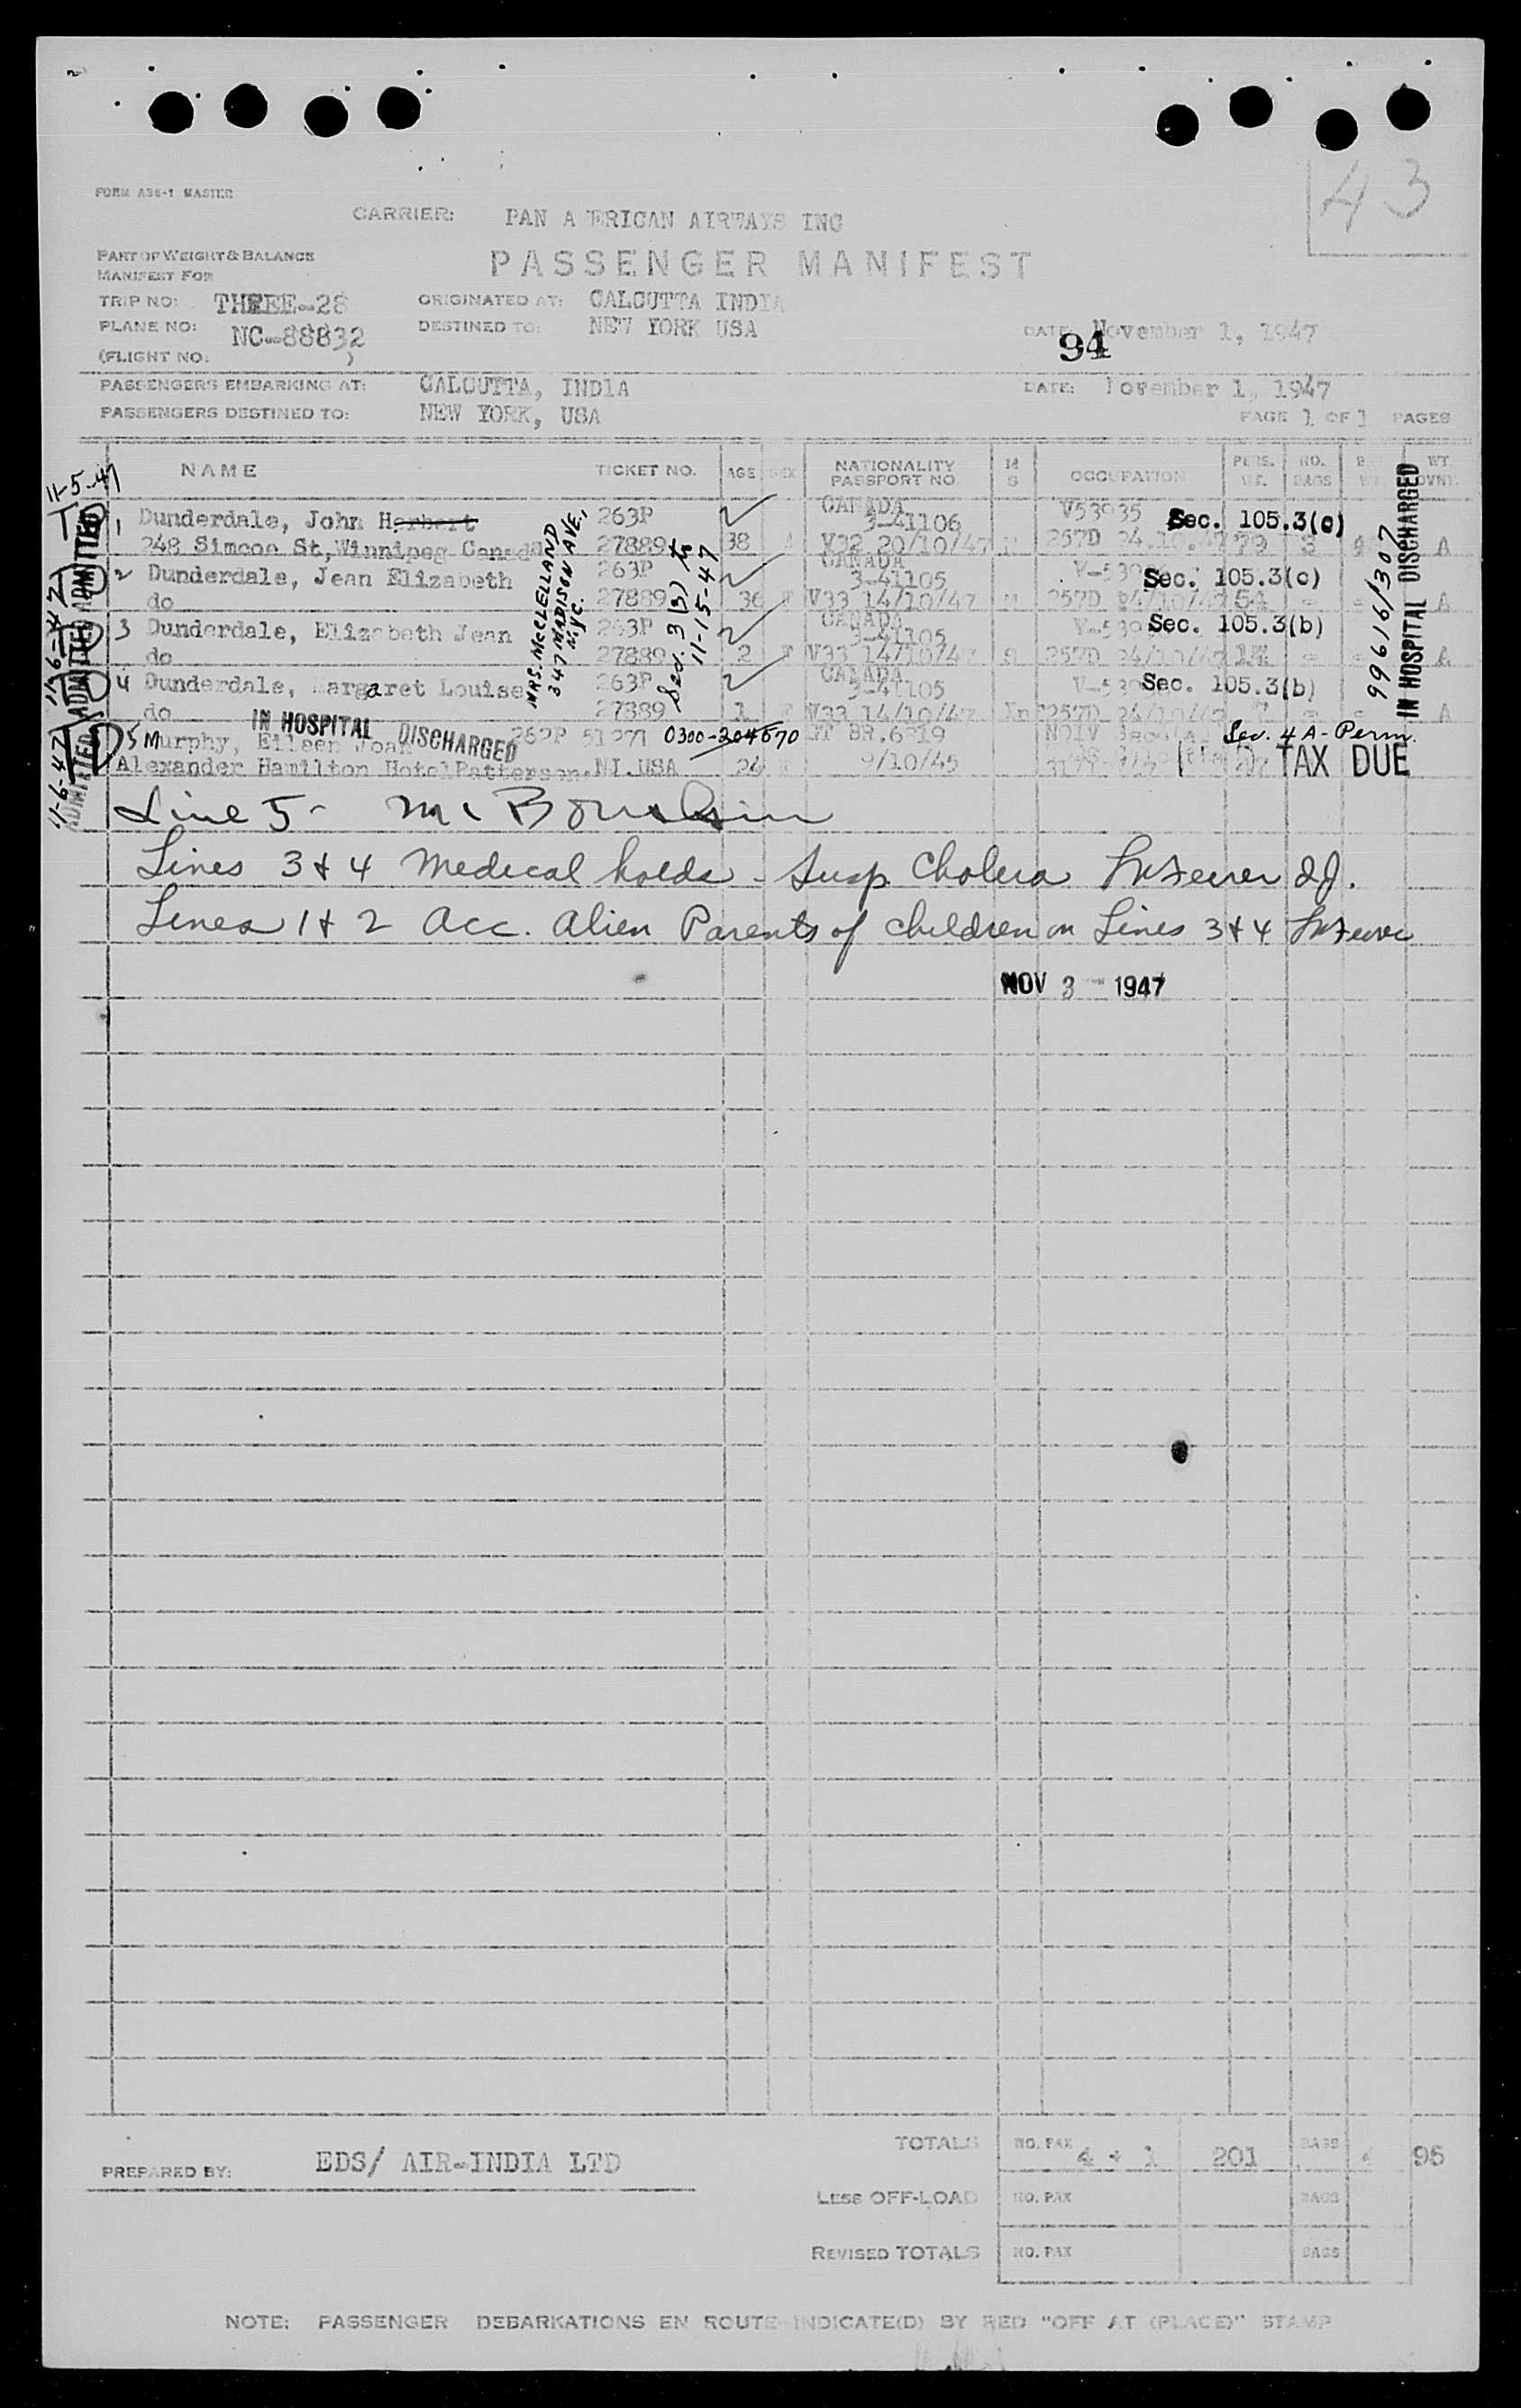 43
FORM A36-1 MASTER
CARRIER: PAN A ERICAN AIRWAYS INC
PART OF WEIGHT & BALANCE
MANIFEST FOR
PASSENGER MANIFEST
TRIP NO: THREE-28 ORIGINATED AT: CALCUTTA INDIA
PLANE NO: NC-88832 DESTINED TO: NEW YORK USA DATE: November 1, 1947
94
(FLIGHT NO. )
PASSENGERS EMBARKING AT: CALCUTTA, INDIA DATE: November 1, 1947
PASSENGERS DESTINED TO: NEW YORK, USA PAGE 1 OF 1 PAGES
NAME TICKET NO. AGE SEX NATIONALITY PASSPORT NO M S OCCUPATION PERS. WT. NO. BAGS WT
1 Dunderdale, John Herbert 263P CANADA 3-41106 V53935 Sec. 105.3(c)
248 Simcoe St, Winnipeg Canada 27889 38 V32 20/10/47 M 257D 24.10.47 79 3 A
2 Dunderdale, Jean Elizabeth 263P CANADA 3-41105 Sec. 105.3(c)
do 27889 36 F V33 14/10/47 M 257D 24/10/47 54 = = A
3 Dunderdale, Elizabeth Jean 263P CANADA 3-41105 Sec. 105.3(b)
do 27889 2 F V33 14/10/47 S 257D 24/10/47 = = A
4 Dunderdale, argaret Louise 263P CANADA 3-41105 Sec. 105.3(b)
do 27889 1 F V33 14/10/47 257D 24/10/47 = = A
5 Murphy, Eileen Joan 262P 51271 0300-204670 BR.6819 NQIV Sec. 4 A- Perm.
Alexander Hamilton Hotel Patterson, NJ. USA 24 9/10/45 TAX DUE
IN HOSPITAL DISCHARGED
11-5-47
ADMITTED
11-6-47
ADMITTED
11-6-47
ADMITTED
MRS. McCLELLAND
347 MADISON AVE.,
NYC.
Sec. 3(3) to
11-15-47
99616/307
IN HOSPITAL DISCHARGED
Line 5-
Lines 3 & 4 Medical holds - Susp Cholera
Lines 1 & 2 Acc. Alien Parents of children on Lines 3 & 4
NOV 3 1947
TOTALS NO. PAX 4 + 1 201 BAGS 95
PREPARED BY: EDS/ AIR-INDIA LTD
LESS OFF-LOAD NO. PAX BAGS
REVISED TOTALS NO. PAX BAGS
NOTE: PASSENGER DEBARKATIONS EN ROUTE INDICATE(D) BY RED "OFF AT (PLACE)" STAMP